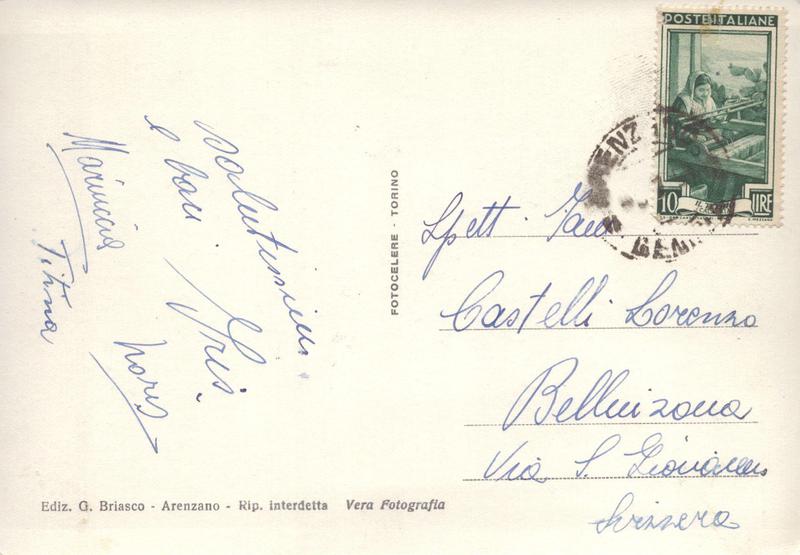 Salutissimi
e baci
Iris
Maruccia
Titina
Loris
FOTOCELERE - TORINO
POSTE ITALIANE
10 LIRE
Spett. Fam
Castelli Lorenzo
Bellinzona
Via S. Giovanni
Svizzera
Ediz. G. Briasco - Arenzano - Rip. interdetta Vera Fotografia